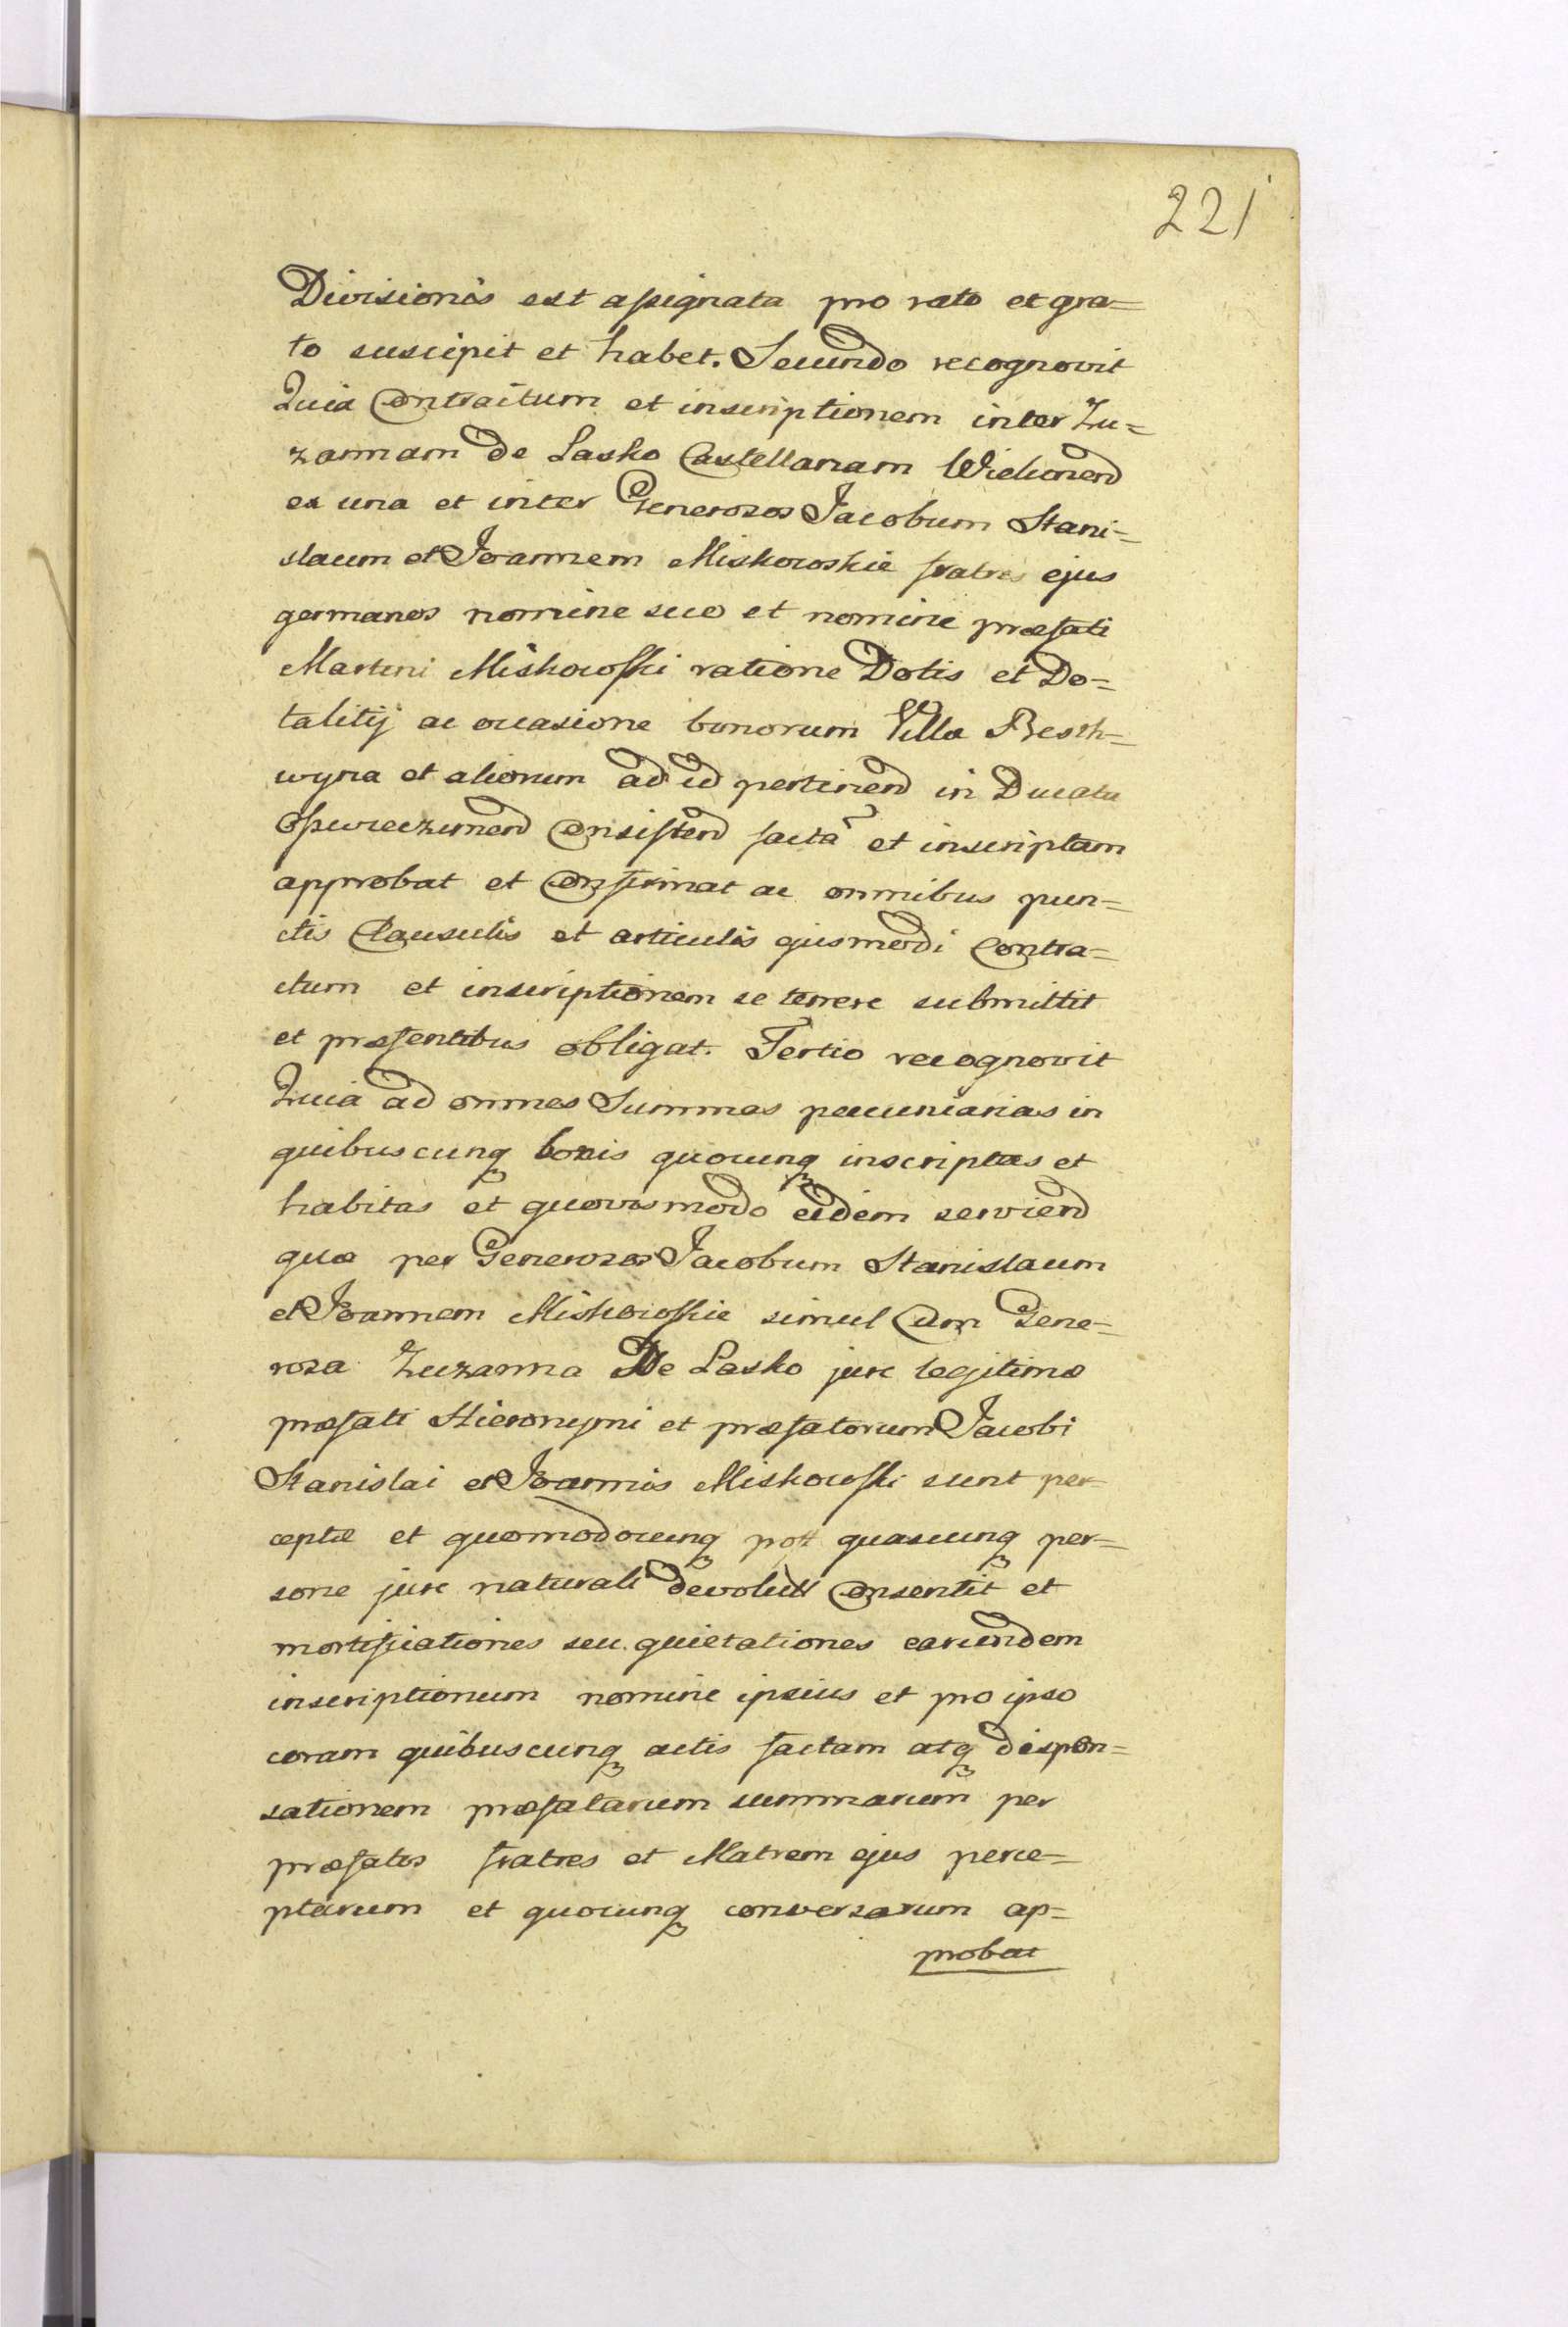 221
Divisionis est assignata pro rato et gra=
to suscipit et habet. Secundo recognovit
Quia Contractum et inscriptionem inter Zu=
zannam De Lasko Castellanam Wielicnend
ex una et inter Generozos Jacobum Stani=
slaum et Joannem Miskowskie fratres ejus
germanos nomine suo et nomine præfati
Martini Miskowski ratione Dotis et Do=
talitij ac occasione bonorum Villa Besth=
wyna et aliorum ad id pertinend in Ducatu
Oswieczimend Consistend facta~ et inscriptam
approbat et Confirmat ac omnibus pun=
ctis Clausulis et articulis ejusmodi Contra=
ctum et inscriptionem se tenere submittit
et præsentibus obligat. Tertio recognovit
Quia ad omnes Summas pecuniarias in
quibuscunq bonis quocunq inscriptas et
habitas et quovismodo eidem serviend
quæ per Generozos Jacobum Stanislaum
et Joannem Miskowskie simul Cum Gene=
roza Zuzanna De Lasko jure legitimo
præfati Hieronymi et præfatorum Jacobi
Stanislai et Joannis Miskowski sunt per=
ceptæ et quomodocunq post quascunq per=
sone jure naturali devolutt Consentit et
mortificationes seu quietationes earundem
inscriptionum nomine ipsius et pro ipso
coram quibuscunq actis factam atq dispen=
sationem præfatarum summarum per
præfatos fratres et Matrem ejus perce=
ptarum et quocunq conversarum ap=
probat